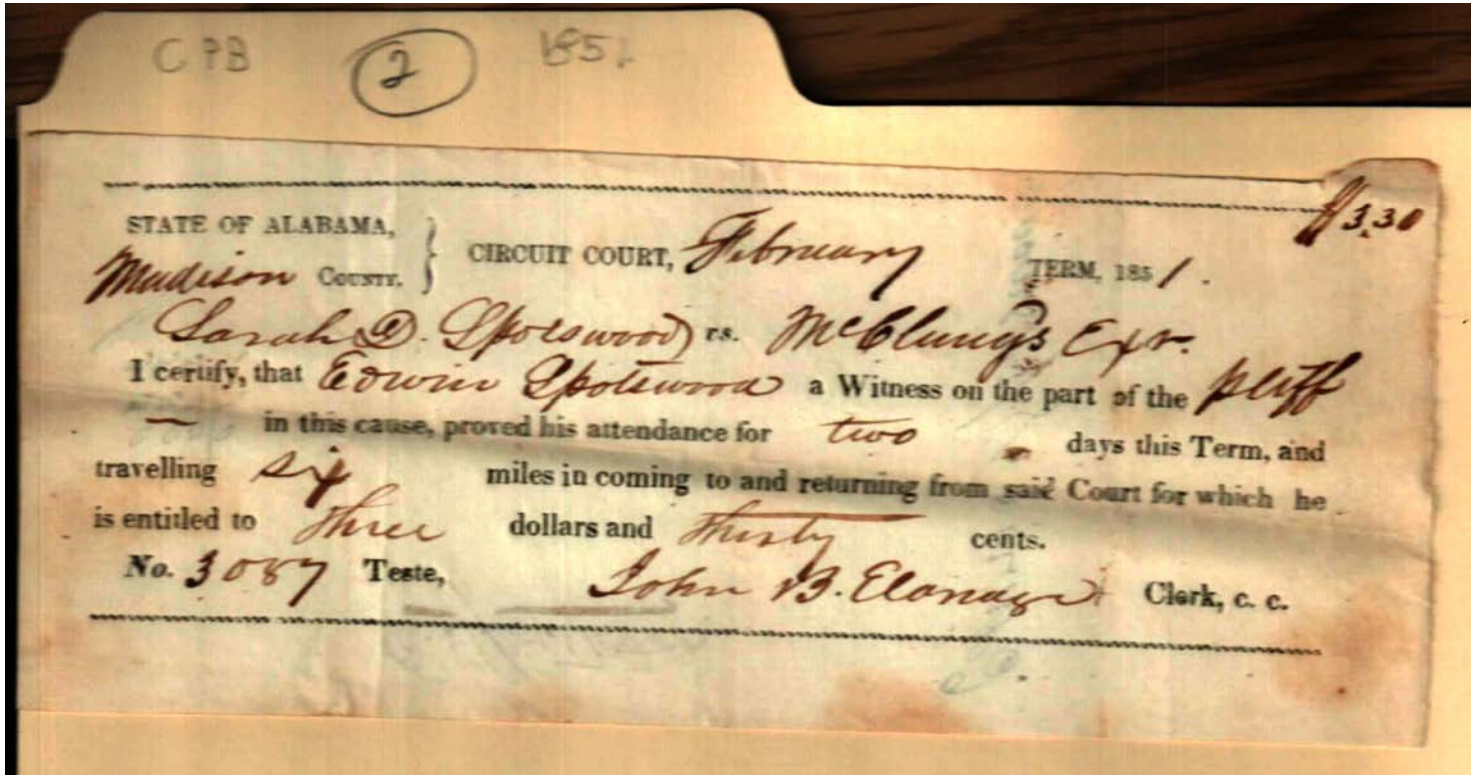 CPB 2 1851
$3.30
STATE OF ALABAMA, } CIRCUIT COURT, February TERM, 1851.
Madison COUNTY.
Sarah D. Spotswood vs. McClung's Exr.
I certify, that Edwin Spotswood a Witness on the part of the pltff
— in this cause, proved his attendance for two days this Term, and
travelling six miles in coming to and returning from said Court for which he
is entitled to three dollars and thirty cents.
No. 3087 Teste, John B. Clerk, c. c.